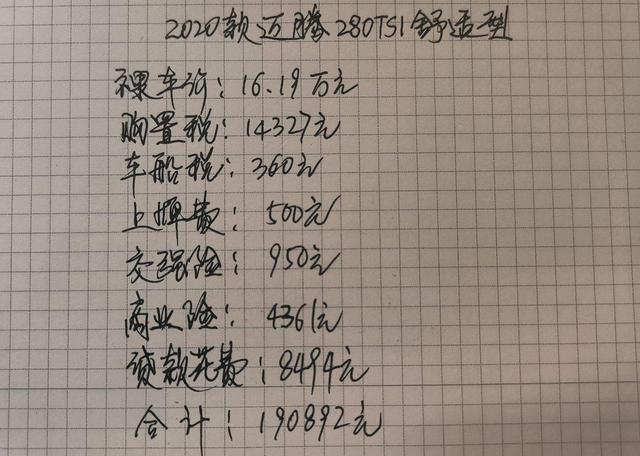 2020款迈腾280TSI舒适型
裸车价：16.19万元
购置税：14327元
车船税：360元
上牌费：500元
交强险：950元
商业险：4361元
贷款花费：8494元
合计：190892元